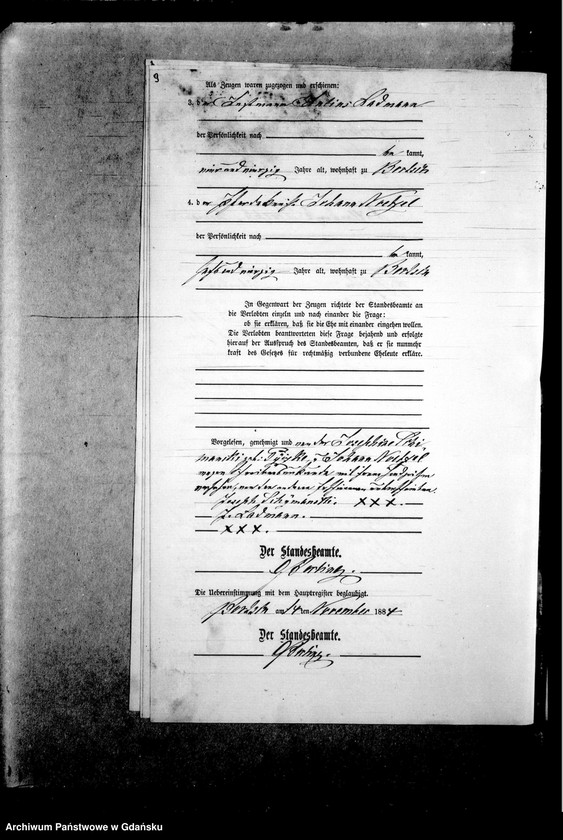 9
Als Zeugen waren zugezogen und erschienen:
3. der Julius Ladmann
der Persönlichkeit nach
be kannt,
vierundvierzig Jahre alt, wohnhaft zu
4. der Johann
der Persönlichkeit nach
be kannt,
Jahre alt, wohnhaft zu
In Gegenwart der Zeugen richtete der Standesbeamte an
die Verlobten einzeln und nach einander die Frage:
ob sie erklären, daß sie die Ehe mit einander eingehen wollen.
Die Verlobten beantworteten diese Frage bejahend und erfolgte
hierauf der Ausspruch des Standesbeamten, daß er sie nunmehr
kraft des Gesetzes für rechtmäßig verbundene Eheleute erkläre.
Vorgelesen, genehmigt und von der Josephine
geb. Johann
wegen Schreibensunkunde mit ihrem Handzeichen
versehen, von den anderen unterschrieben.
Joseph XXX.
J. Ladmann.
XXX.
Der Standesbeamte.
Die Uebereinstimmung mit dem Hauptregister beglaubigt.
am 14 ten November 1884
Der Standesbeamte.
Archiwum Państwowe w Gdańsku